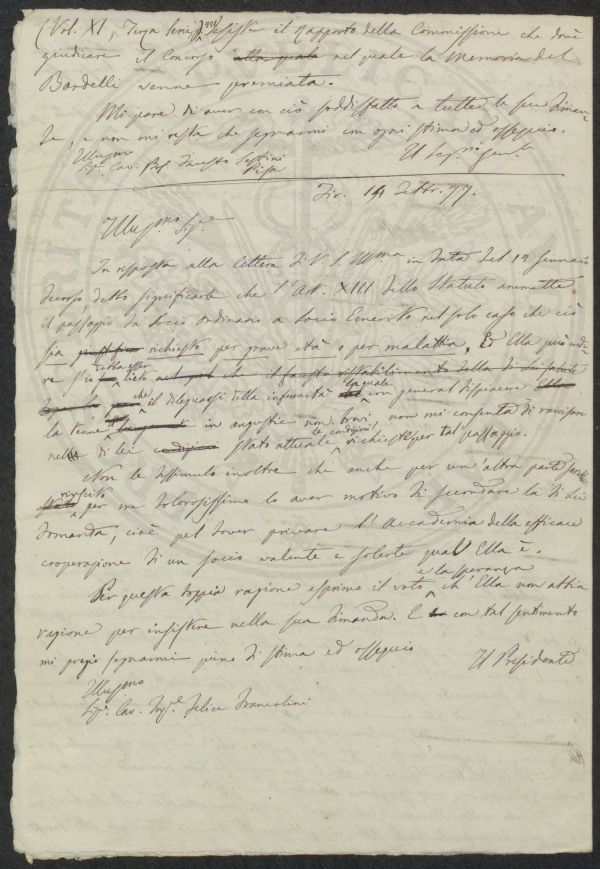 (Vol. XI, Terza Serie) esiste il Rapporto della Commissione che dovè
giudicare il Concorso alla quale nel quale la Memoria del
Bardelli venne premiata.
Mi pare di aver con ciò soddisfatto a tutte le sue diman-
de, e non mi resta che segnarmi con ogni stima ed ossequio.
Illusmo
Sigr. Cav. Prof. Fausto Sestini
Pisa
Il Segrio
Fir. 19 Febbr. 77.
Illusmo Sigre
In risposta alla lettera di V. S. Illma in data del 17 Gennaio
decorso debbo significarle che l'Art. XIII dello Statuto ammette
il passaggio da Socio Ordinario a Socio Emerito nel solo caso che ciò
sia richiesto per grave età o per malattia, Ed Ella può cre-
dere s'io lieto che il fausto ristabilimento della di
che il dileguarsi della infermità la quale con general dispiacere Ella
la tenne in angustie non brevi, non mi consenta di ravvisare
nelle di lei condizioni stato attuale le condizioni richieste per tal passaggio.
Non le dissimulo inoltre che anche per un'altra parte
riuscito per me dolorosissimo lo aver motivo di secondare la di Lei
domanda, cioè pel dover privare l'Accademia della efficace
cooperazione di un socio valente e solerte qual'Ella è.
Per questa doppia ragione esprimo il voto e la speranza ch'Ella non abbia
ragione per insistere nella sua dimanda. E con tal sentimento
mi pregio segnarmi pieno di stima ed ossequio
Il Presidente
Illusmo
Sigr. Cav. Ingre. Felice Francolini